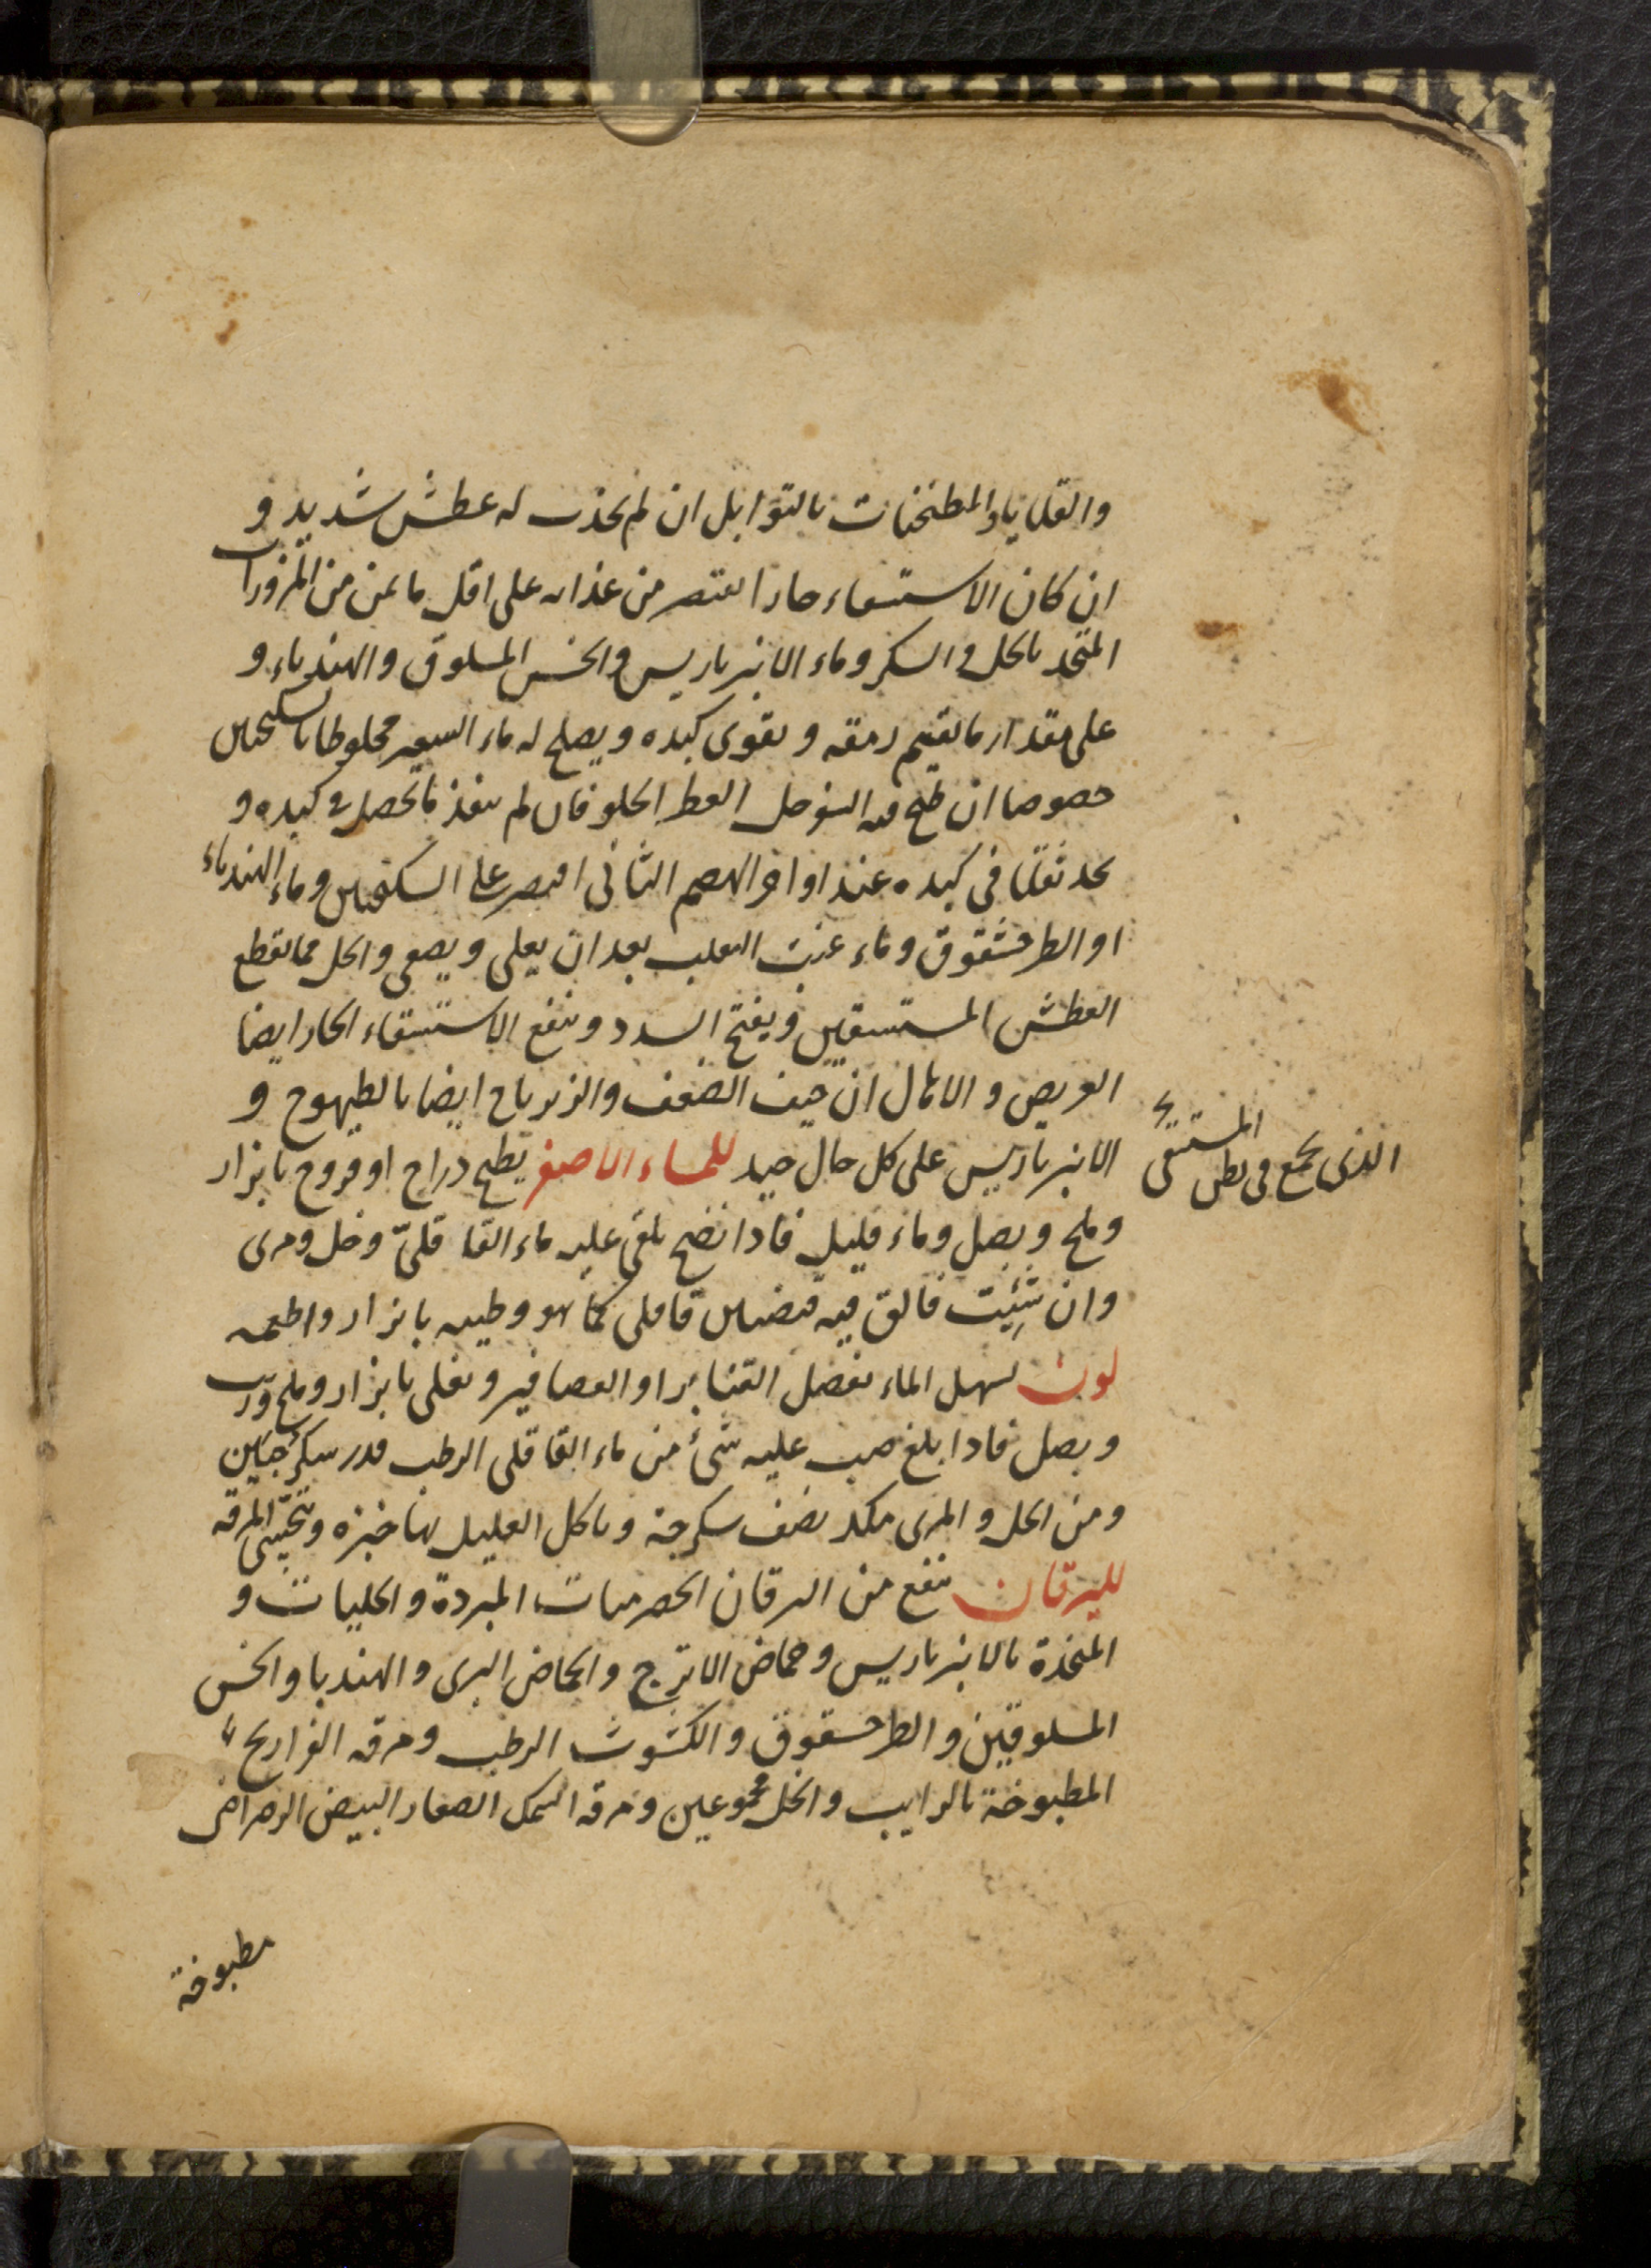 والقلايا والمطنجنات بالتوابل ان لم يحدث له عطش شديد و
ان كان الاستسقاء حارا اقتصر من غذائه على اقل ما يمكن من المزورات
المتخذ بالخل و السكر وماء الانبرباريس والخس المسلوق والهندباء و
على مقدار ما يقيم رمقه و يقوى كبده ويصلح له ماء الشعير مخلوطا بالسكنجبين
خصوصا ان طبخ فيه السفرجل الحلو فان لم ينفذ ما تحصل فى كبده و
يجد ثقلا فى كبده عند اواخر الهضم الثانى اقتصر على السكنجبين وماء الهندباء
او الطرخشقوق وماء عنب الثعلب بعد ان يغلى ويصفى والخل مما يقطع
العطش المستسقين ويفتح السدد وينفع الاستسقاء الحار ايضا
القريص و الانمال ان خيف الضعف والزيرباج ايضا بالطيهوج و
الانبرباريس على كل حال جيد للماء الاصفر يطبخ دراج او فروج بابزار
الذى يجمع فى بطن المستسقى
وملح وبصل وماء قليل فاذا نضج يلقى عليه ماء القاقلى وخل ومرى
وان شئت فالق فيه قضبان قاقلى كما هو وطيبه بابزار واطعمه
لون لسهل الماء تفصل القنابر او العصافير وتغلى بابزار وملح وزيت
وبصل فاذا بلغ صب عليه شئ من ماء القاقلى الرطب قدر سكرجتين
ومن الخل و المرى نصف سكرجة وياكل العليل بها خبزه ويتحسى المرقة
لليرقان ينفع من اليرقان الحصرميات المبردة و الخليات و
المتخذة بالانبرباريس وحماض الاترج والحماض البرى والهندبا والخس
المسلوقين والطرخشقوق والكشوث الرطب ومرقه الفراريج
المطبوخة بالرايب والخل مجموعين ومرقه السمك الصغار البيض الرضراضى
مطبوخة